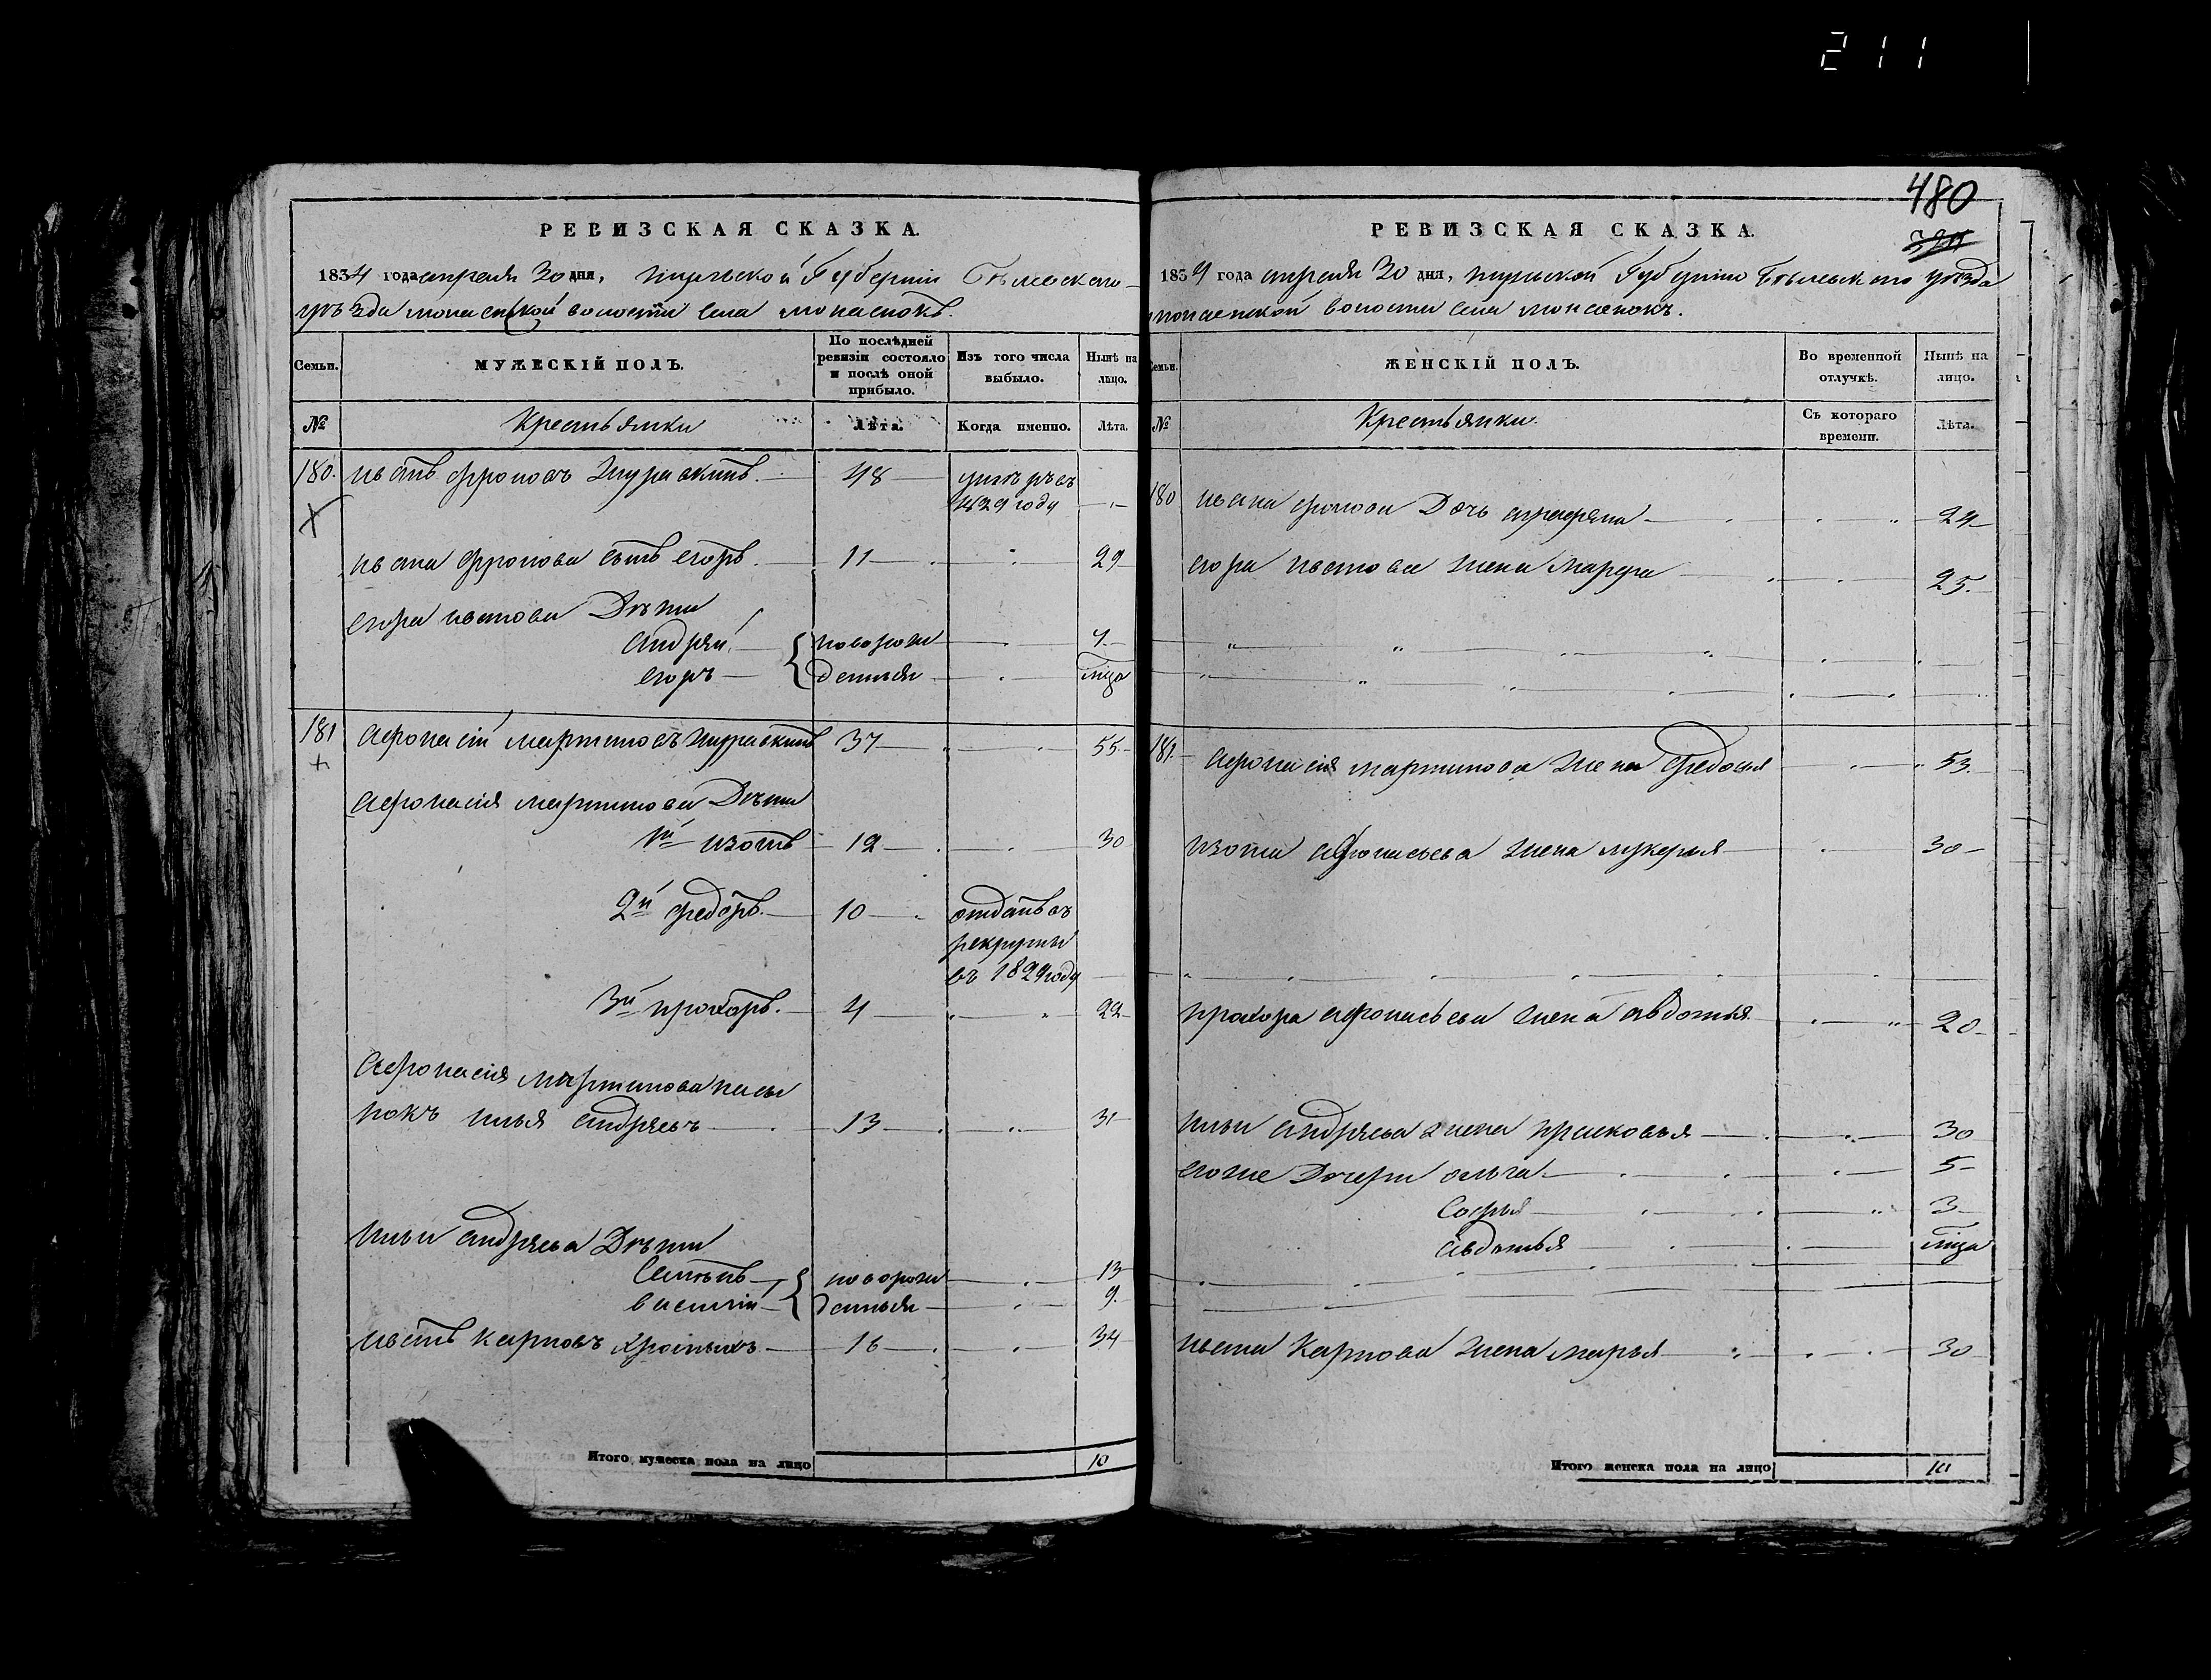 211
480
РЕВИЗСКАЯ СКАЗКА.
1834 года апреля 30 дня, Губернiи
уѣзда волости села
Семьи.
МУЖЕСКIЙ ПОЛЪ.
По послѣдней ревизiи состояло и послѣ оной прибыло.
Изъ того числа выбыло.
Нынѣ на лицо.
№
Крестьянки
Лѣта.
Когда именно.
Лѣта.
180. иванъ фроловъ Журавкинъ. 48 умѣръ въ
1829 году
ивана фролова сынъ егоръ. 11 29
егора иванова Дѣти
андрей новорож
егоръ деныя 1/2 года
181 афонасiй мартиновъ журавкинъ 37 55
афонасiя мартинова Дѣти
1й изотъ 12 30
2й федоръ. 10 отданъ въ
рекруты
въ 1829 году
3й прохоръ. 4 22
Афонасiя мартинова пасы
нокъ илья андреевъ 13 31
ильи андреева Дѣти
Семѣнъ новорож 13
василiй деныя 9.
иванъ карповъ 16 34
Итого мужеска пола на лицо 10
РЕВИЗСКАЯ СКАЗКА.
1834 года апреля 30 дня, Губернiи уѣзда
волости села
Семьи.
ЖЕНСКIЙ ПОЛЪ.
Во временной отлучкѣ.
Нынѣ на лицо.
№
Крестьянки.
Съ котораго времени.
Лѣта.
180 ивана фролова Дочь аграфена 24
егора иванова жена марфа 25.
181. афонасiя мартинова жена федосья 53.
изота афонасьева жена лукерья 30
прохора афонасьева жена авдотья 20
ильи андреева жена прасковья 30
егоже Дочери ольга 5
Софья 3
авдотья 1/2 года
ивана Карпова жена марья 30
Итого женска пола на лицо 10